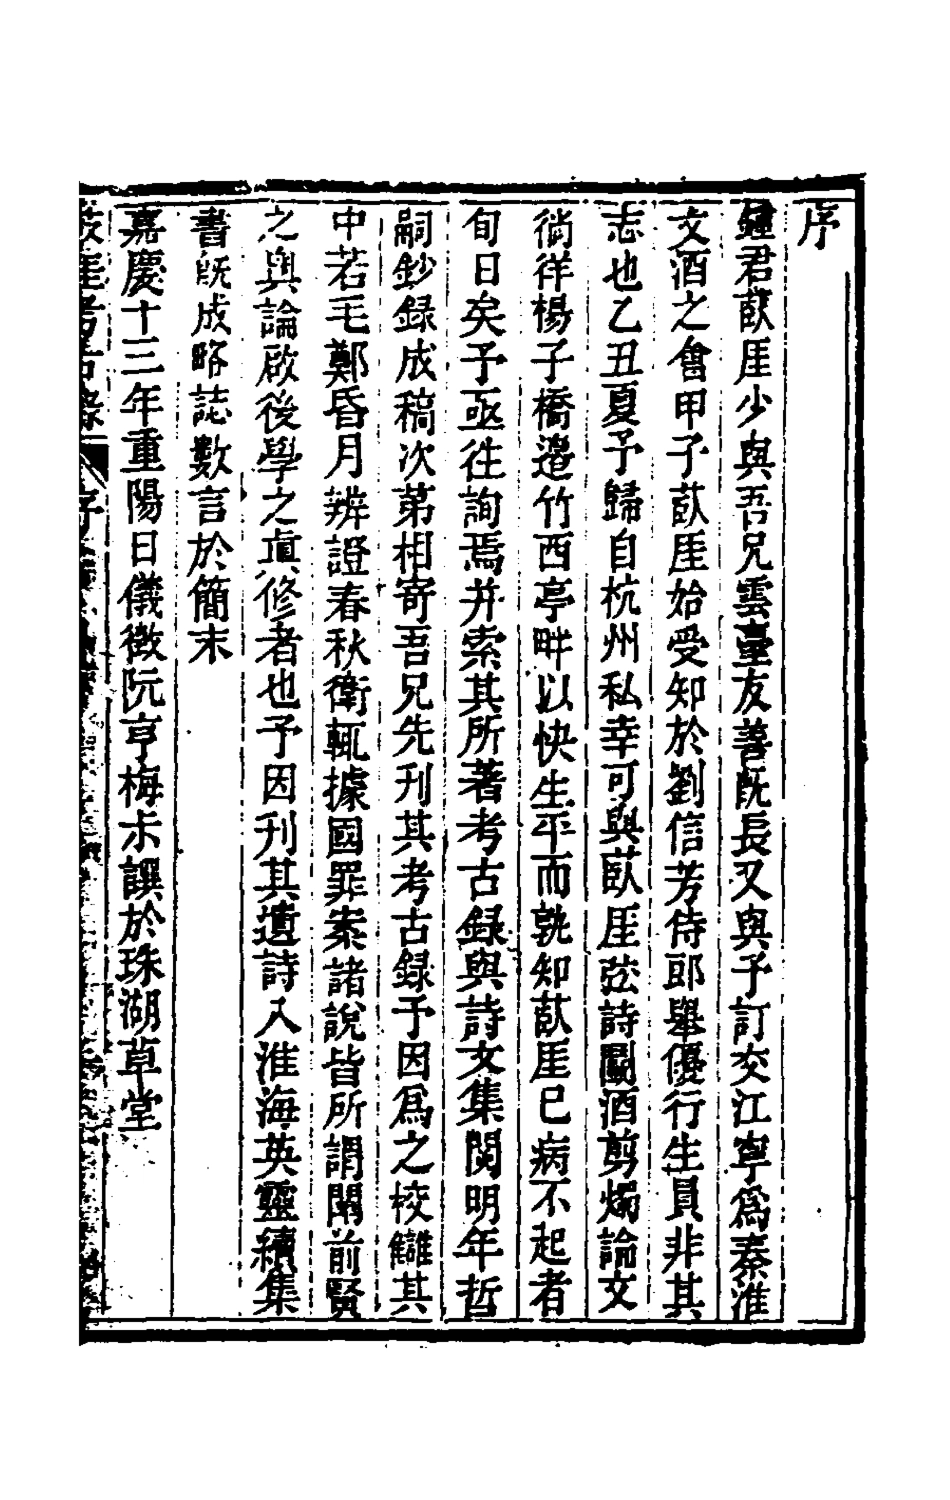 序
鍾君菣厓少與吾兄雲臺友善旣長又與予訂交江寧爲秦淮
文酒之會甲子菣厓始受知於劉信芳侍郎舉優行生員非其
志也乙丑夏予歸自杭州私幸可與菣厓弦詩鬭酒剪燭論文
徜徉楊子橋邊竹西亭畔以快生平而孰知菣厓已病不起者
旬日矣予亟往詢焉并索其所著考古録與詩文集閱明年哲
嗣鈔録成稿次第相寄吾兄先刊其考古録予因爲之校讎其
中若毛鄭昏月辨證春秋衛輒據國罪案諸說皆所謂闡前賢
之奧論啟後學之眞修者也予因刊其遺詩入淮海英靈續集
書旣成略誌數言於簡末
嘉慶十三年重陽日儀徵阮亨梅叔譔於珠湖草堂
菣厓考古錄 序